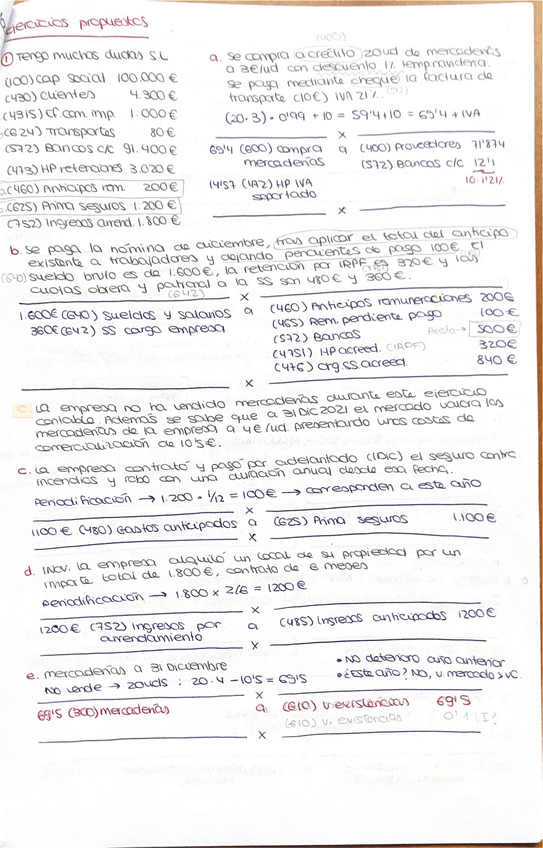 ejercicios propuestos
① Tengo muchas dudas S.L
(100) cap social 100.000 €
(430) clientes 4.300 €
(4315) ef. com. imp. 1.000 €
(624) Transportes 80 €
(572) Bancos c/c 91.400 €
(473) HP retenciones 3.020 €
(460) Anticipos rem. 200 €
(625) Prima seguros 1.200 €
(752) Ingresos arrend. 1.800 €
(400)
a. se compra a crédito 20ud de mercaderías
a 3€/ud con descuento 1%
se paga mediante cheque la factura de
transporte (10€) IVA 21%.
(20·3)·0'99 + 10 = 59'4+10 = 69'4 + IVA
x
69'4 (600) compra mercaderías a (400) Proveedores 71'874
(572) Bancos c/c 12'1
10·1'21
14'57 (472) HP IVA soportado
x
b. se paga la nómina de diciembre, tras aplicar el total del anticipo
existente a trabajadores y dejando pendientes de pago 100€. El
(640) sueldo bruto es de 1.600€, la retención por IRPF es 320€ y las
cuotas obrera y patronal a la SS son 480€ y 360€.
(642)
x
1.600€ (640) Sueldos y salarios a (460) Anticipos remuneraciones 200€
360€ (642) SS cargo empresa (465) Rem. pendiente pago 100€
(572) Bancos Resto → 500€
(4751) HP acreed. (IRPF) 320€
(476) Org. SS acreed. 840€
x
c. La empresa no ha vendido mercaderías durante este ejercicio
contable. Además se sabe que a 31 DIC 2021 el mercado valora las
mercaderías de la empresa a 4€/ud. presentando unos costes de
comercialización de 10'5€.
c. La empresa contrató y pagó por adelantado (1DIC) el seguro contra
incendios y robo con una duración anual desde esa fecha.
Periodificación → 1.200 · 1/12 = 100€ → corresponden a este año
x
1100€ (480) Gastos anticipados a (625) Prima seguros 1.100€
x
d. 1NOV. La empresa alquiló un local de su propiedad por un
importe total de 1.800€, contrato de 6 meses
Periodificación → 1.800 x 2/6 = 1200€
x
1200€ (752) Ingresos por arrendamiento a (485) Ingresos anticipados 1200€
x
e. mercaderías a 31 diciembre
No vende → 20uds ; 20·4-10'5 = 69'5
• No deterioro año anterior
• ¿Este año? No, v. mercado > VC.
x
69'5 (300) mercaderías a (610) v. existencias 69'5
(610) v. existencias
x